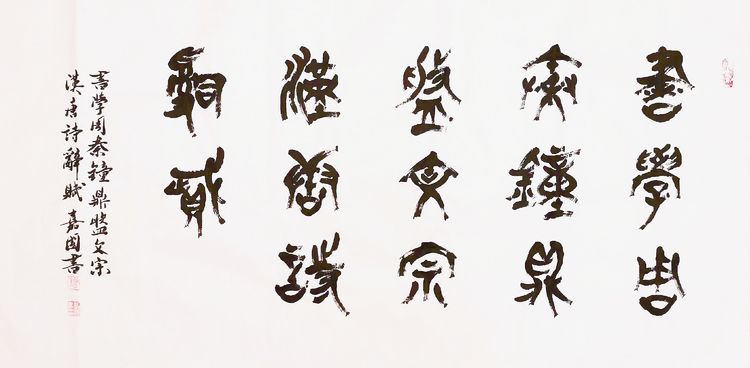 書學周
秦鐘鼎
盤文宗
漢唐詩
辭賦
書學周秦鐘鼎盤文宗
漢唐詩辭賦 嘉國書